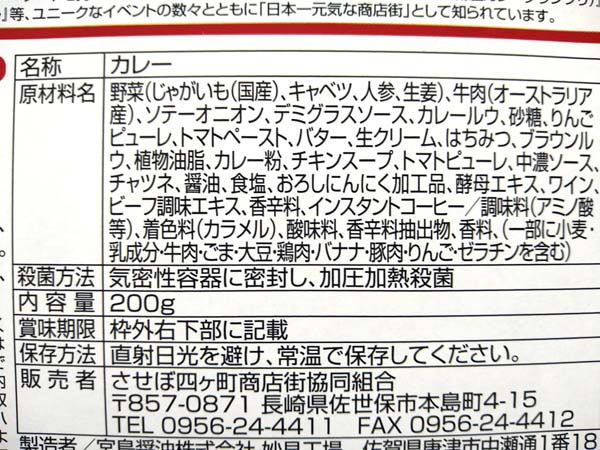 等、ユニークなイベントの数々とともに「日本一元気な商店街」として知られています。
名称 カレー
原材料名 野菜(じゃがいも(国産)、キャベツ、人参、生姜)、牛肉(オーストラリア
産)、ソテーオニオン、デミグラスソース、カレールウ、砂糖、りんご
ピューレ、トマトペースト、バター、生クリーム、はちみつ、ブラウンル
ウ、植物油脂、カレー粉、チキンスープ、トマトピューレ、中濃ソース、
チャツネ、醤油、食塩、おろしにんにく加工品、酵母エキス、ワイン、
ビーフ調味エキス、香辛料、インスタントコーヒー／調味料(アミノ酸
等)、着色料(カラメル)、酸味料、香辛料抽出物、香料、(一部に小麦・
乳成分・牛肉・ごま・大豆・鶏肉・バナナ・豚肉・りんご・ゼラチンを含む)
殺菌方法 気密性容器に密封し、加圧加熱殺菌
内容量 200g
賞味期限 枠外右下部に記載
保存方法 直射日光を避け、常温で保存してください。
販売者 させぼ四ヶ町商店街協同組合
〒857-0871 長崎県佐世保市本島町4-15
TEL 0956-24-4411 FAX 0956-24-4412
製造者／宮島醤油株式会社 妙見工場 佐賀県唐津市中瀬通1番18